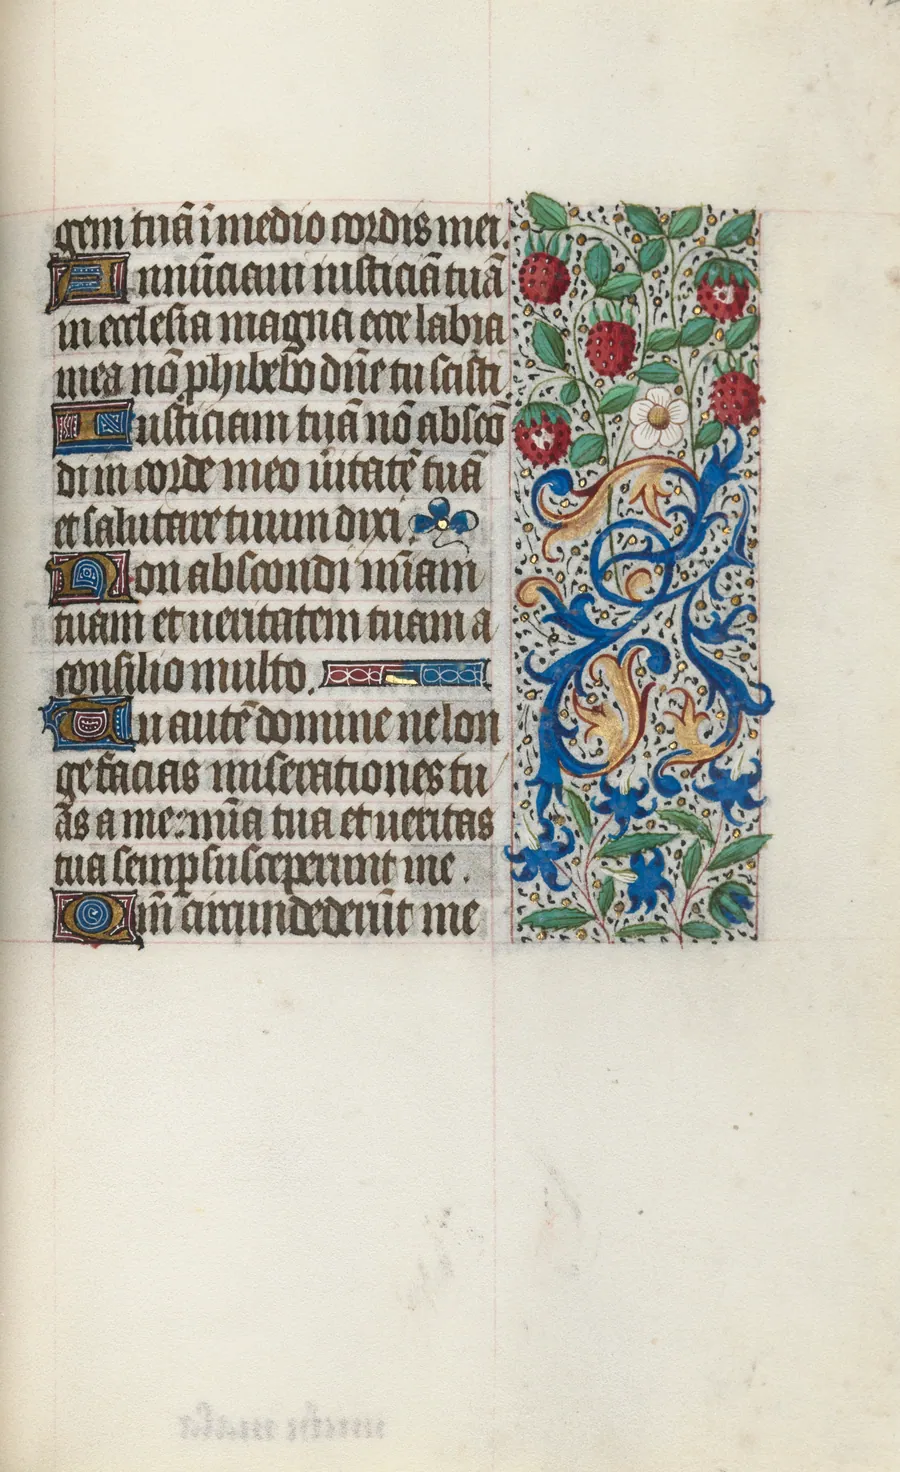 gem tuã ĩ medio cordis mei.
Annũciaui iusticiã tuã
in ecclesia magna ecce labia
mea nõ phibebo dñe tu scisti.
Iusticiam tuã nõ abscõ
di in corde meo ũitatẽ tuã
et salutare tuum dixi.
Non abscondi mĩam
tuam et ueritatem tuam a
consilio multo.
Tu autẽ domine ne lon
ge facias miserationes tu
ãs a me: mĩa tua et ueritas
tua semp susceperunt me.
Qm̃ circundederũt me